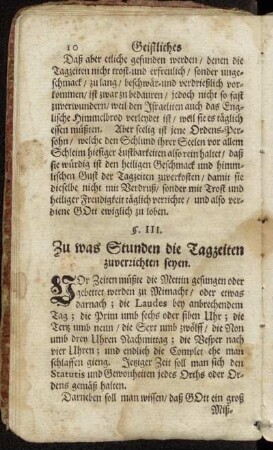 10 Geistliches
Daß aber etliche gefunden werden / denen die
Tagzeiten nicht trost- und erfreulich / sonder unge-
schmack / zu lang / beschwär- und verdrießlich vor-
kommen / ist zwar zu bedauren / jedoch nicht so fast
zuverwundern / weil den Israeliten auch das Eng-
lische Himmelbrod verleydet ist / weil sie es täglich
essen müßten. Aber seelig ist jene Ordens-Per-
sohn / welche den Schlund ihrer Seelen vor allem
Schleim hiesiger Lustbarkeiten also rein haltet / daß
sie würdig ist den heiligen Geschmack und himm-
lischen Gust der Tagzeiten zuverkosten / damit sie
dieselbe nicht mit Verdruß / sonder mit Trost und
heiliger Freudigkeit täglich verrichte / und also ver-
diene GOtt ewiglich zu loben.
§. III.
Zu was Stunden die Tagzeiten
zuverrichten seyen.
VOr Zeiten müßte die Mettin gesungen oder
gebettet werden zu Mitnacht / oder etwas
darnach ; die Laudes bey anbrechendem
Tag ; die Prim umb sechs oder siben Uhr ; die
Tertz umb neun / die Sext umb zwölff / die Non
umb drey Uhren Nachmittag ; die Vesper nach
vier Uhren ; und endlich die Complet ehe man
schlaffen gieng. Jetziger Zeit soll man sich den
Statutis und Gewonheiten jedes Orths oder Or-
dens gemäß halten.
Darneben soll man wissen / daß GOtt ein groß
Miß-